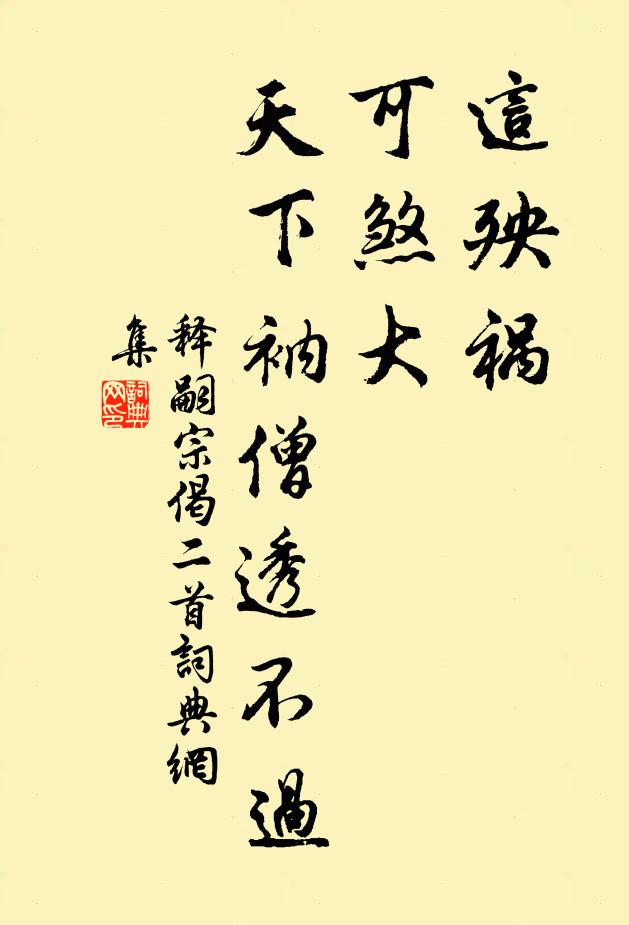 這殃禍
可煞大
天下衲僧透不過
释嗣宗偈二首詞典網
集
詞典
网印